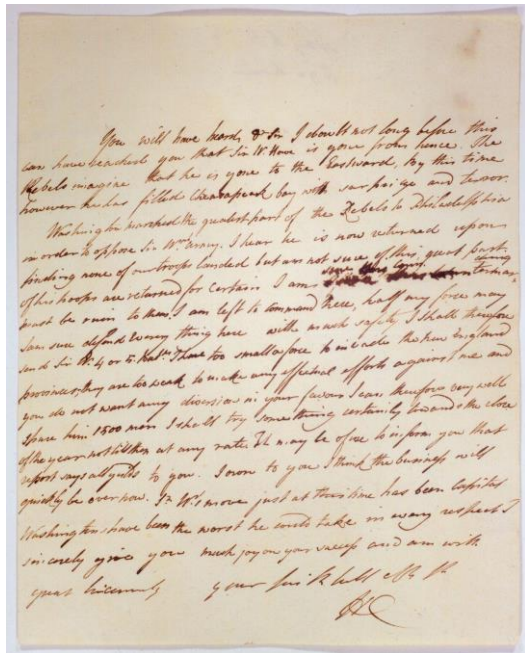 You will have heard, Dr Sir I doubt not long before this
can have reached you that Sir W. Howe is gone from hence. The
Rebels imagine that he is gone to the Eastward, by this time
however he has filled Chesapeak bay with surprize and terror.
Washington marched the greatest part of the Rebels to Philadelphia
in order to oppose Sir Wms army. I hear he is now returned upon
finding none of our troops landed but am not sure of this, great part
of his troops are returned for certain I am sure this
must be ruin to them. I am left to command here, half my force may
I am sure defend every thing here with much safety I shall therefore
send Sir W. 4 or 5 Batns I have too small a force to invade the New England
provinces, they are too weak to make any effectual efforts against me and
you do not want any diversion in your favour I can therefore very well
spare him 1500 men I shall try something certainly towards the close
of the year not till then at any rate. It may be of use to inform you that
report says all yields to you. I own to you I think the business will
quickly be over now. Sr W's move just at this time has been Capital
Washingtons have been the worst he could take in every respect I
sincerely give you much joy on your success and am with
great Sincerity your
HC